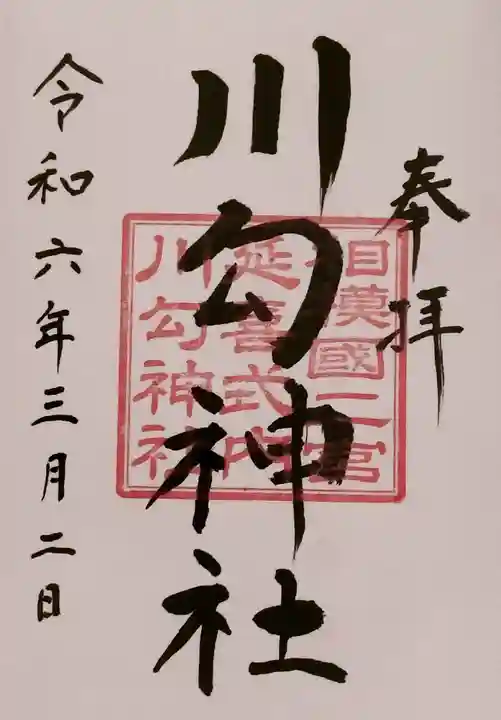 奉拝
相模國二宮
延喜式内
川勾神社
川勾神社
令和六年三月二日